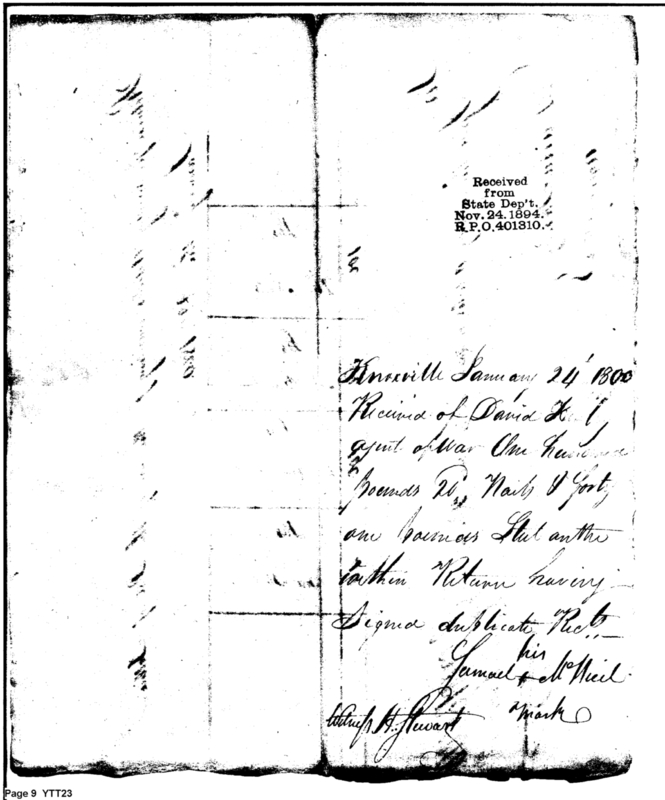 Received
from
State Dep't.
Nov. 24. 1894.
R.P.O. 401310.
Knoxville January 24' 1800
Received of David
agent of War One hundred
pounds 20 Nails & forty
one pounds Steel on the
within Return having
Signed duplicate Rects
his
Samuel + McNeil
mark
Witness H. Stewart
Page 9 YTT23